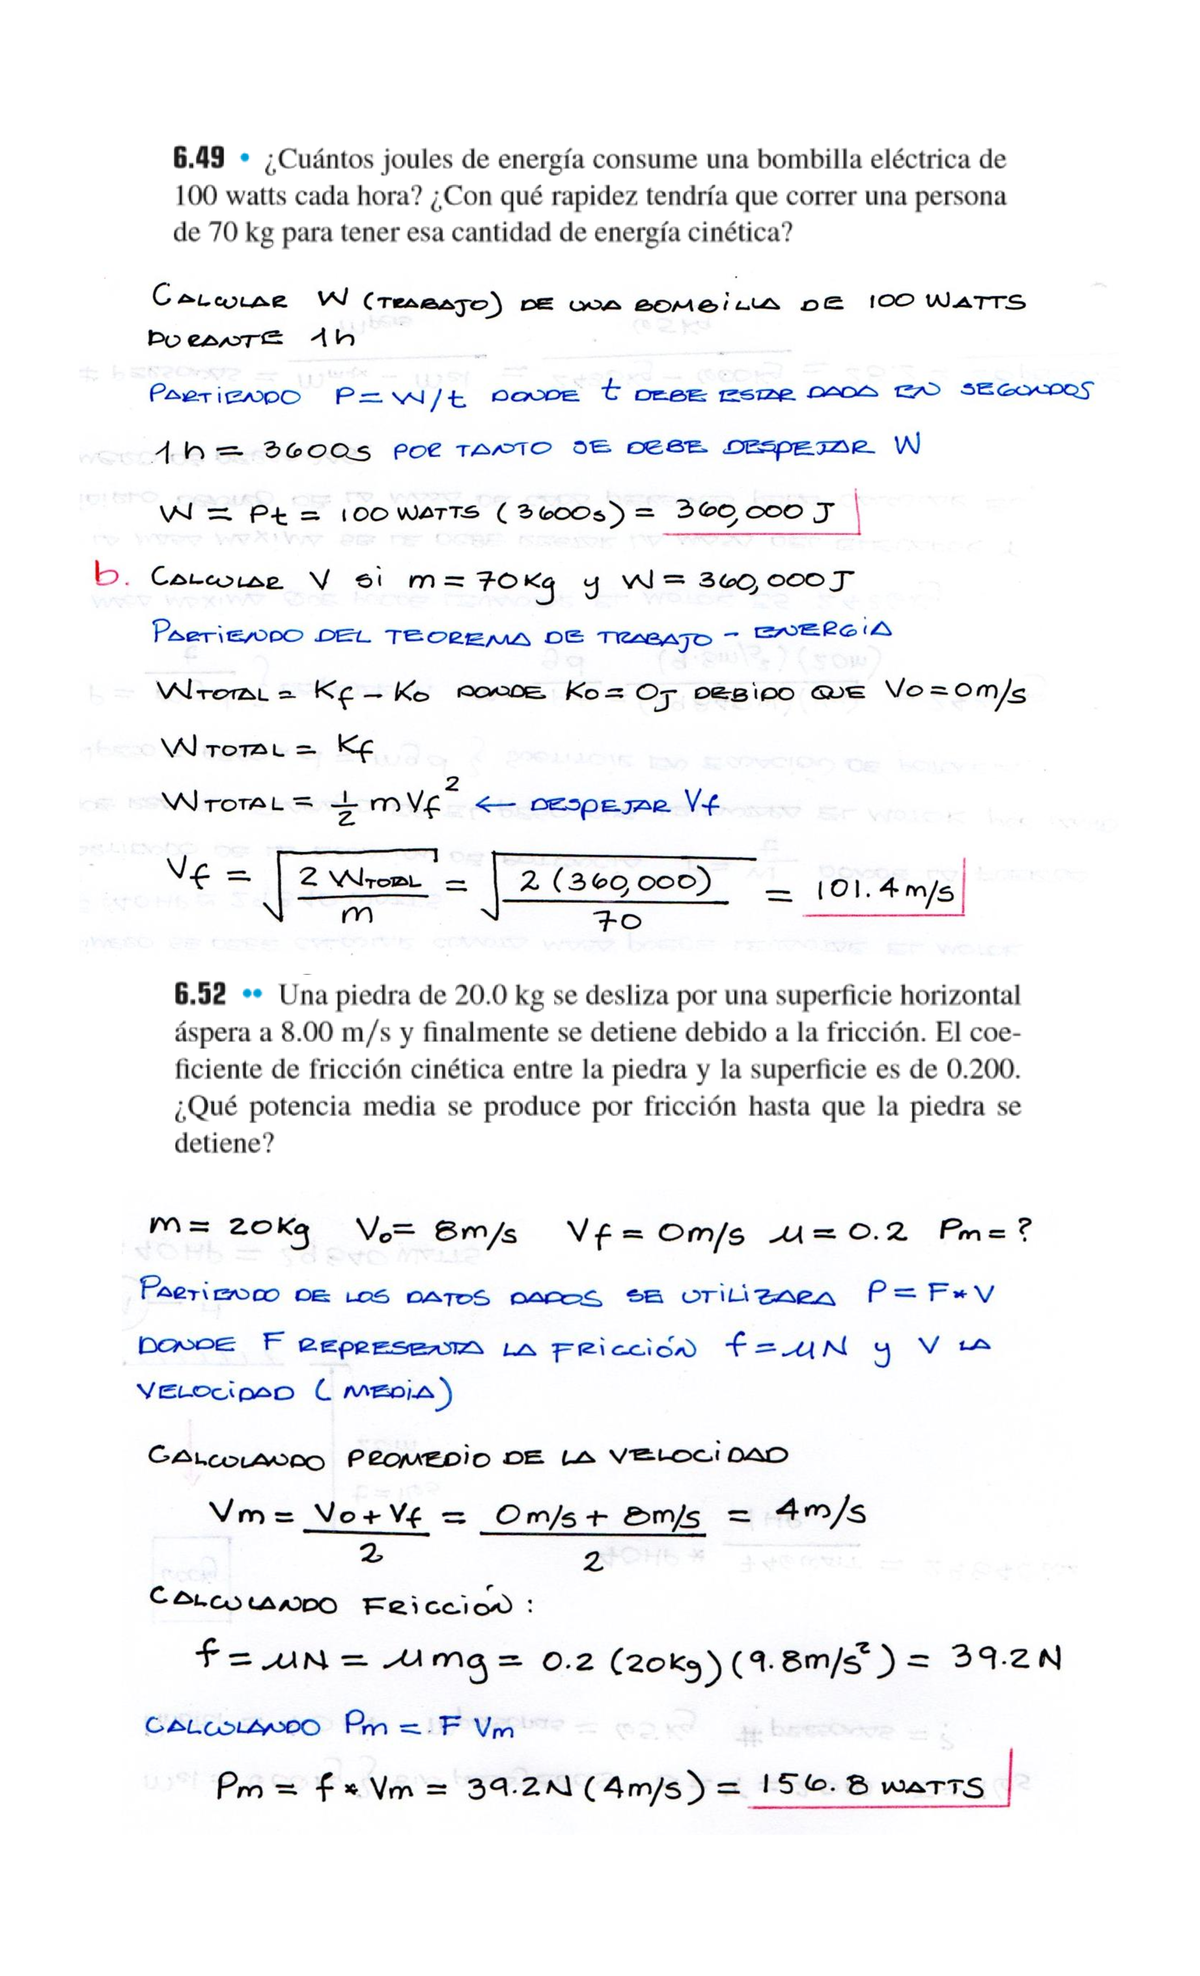 6.49 • ¿Cuántos joules de energía consume una bombilla eléctrica de
100 watts cada hora? ¿Con qué rapidez tendría que correr una persona
de 70 kg para tener esa cantidad de energía cinética?
CALCULAR W (TRABAJO) DE UNA BOMBILLA DE 100 WATTS
DURANTE 1h
PARTIENDO P=W/t DONDE t DEBE ESTAR DADA EN SEGUNDOS
1h = 3600s POR TANTO SE DEBE DESPEJAR W
W = Pt = 100 WATTS (3600s) = 360,000 J
b. CALCULAR V si m = 70Kg y W = 360,000 J
PARTIENDO DEL TEOREMA DE TRABAJO - ENERGIA
WTOTAL = Kf - Ko DONDE Ko = 0J DEBIDO QUE Vo = 0m/s
WTOTAL = Kf
WTOTAL = 1/2 mVf² ← DESPEJAR Vf
Vf = √(2 WTOTAL / m) = √(2 (360,000) / 70) = 101.4 m/s
6.52 •• Una piedra de 20.0 kg se desliza por una superficie horizontal
áspera a 8.00 m/s y finalmente se detiene debido a la fricción. El coe-
ficiente de fricción cinética entre la piedra y la superficie es de 0.200.
¿Qué potencia media se produce por fricción hasta que la piedra se
detiene?
m = 20Kg Vo = 8m/s Vf = 0m/s μ = 0.2 Pm = ?
PARTIENDO DE LOS DATOS DADOS SE UTILIZARA P = F*V
DONDE F REPRESENTA LA FRICCIÓN f = μN y V LA
VELOCIDAD (MEDIA)
CALCULANDO PROMEDIO DE LA VELOCIDAD
Vm = Vo + Vf / 2 = 0m/s + 8m/s / 2 = 4m/s
CALCULANDO FRICCIÓN :
f = μN = μmg = 0.2 (20Kg) (9.8m/s²) = 39.2N
CALCULANDO Pm = F Vm
Pm = f * Vm = 39.2N (4m/s) = 156.8 WATTS